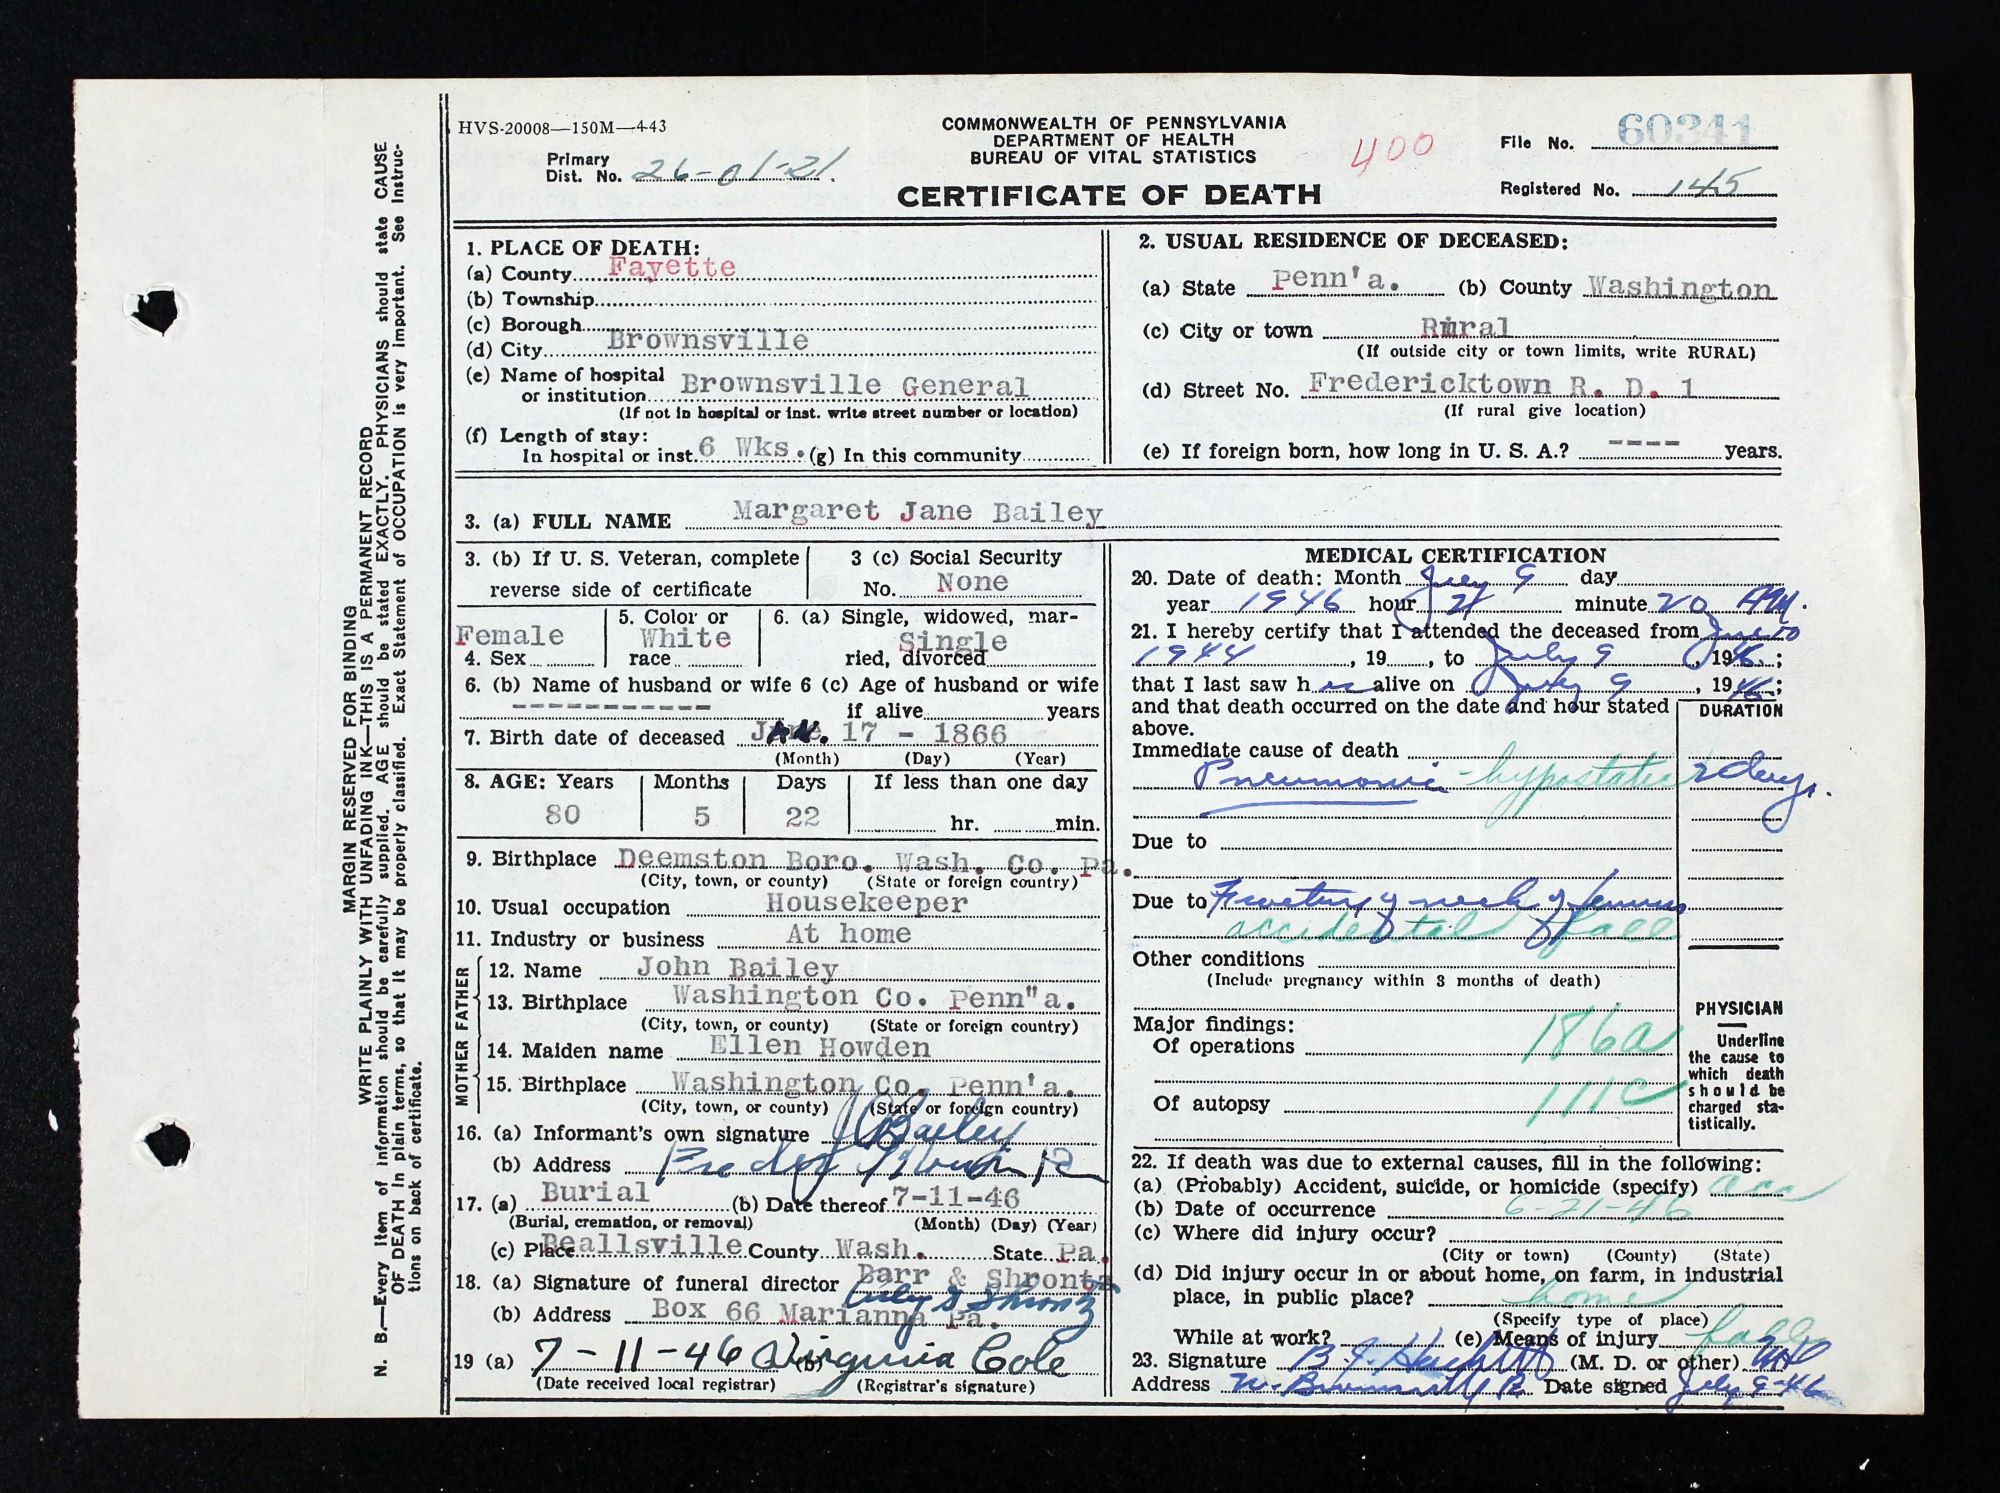 HVS-20008—150M—4-43
COMMONWEALTH OF PENNSYLVANIA
DEPARTMENT OF HEALTH
BUREAU OF VITAL STATISTICS
CERTIFICATE OF DEATH
400
Primary
Dist. No. 26-01-21.
File No. 60341
Registered No. 145
MARGIN RESERVED FOR BINDING
WRITE PLAINLY WITH UNFADING INK—THIS IS A PERMANENT RECORD
N. B.—Every item of information should be carefully supplied. AGE should be stated EXACTLY. PHYSICIANS should state CAUSE
OF DEATH in plain terms, so that it may be properly classified. Exact Statement of OCCUPATION is very important. See Instruc-
tions on back of certificate.
1. PLACE OF DEATH:
(a) County Fayette
(b) Township
(c) Borough
(d) City Brownsville
(e) Name of hospital
or institution Brownsville General
(If not in hospital or inst. write street number or location)
(f) Length of stay:
In hospital or inst. 6 Wks. (g) In this community
2. USUAL RESIDENCE OF DECEASED:
(a) State Penn'a. (b) County Washington
(c) City or town Rural
(If outside city or town limits, write RURAL)
(d) Street No. Fredericktown R. D. 1
(If rural give location)
(e) If foreign born, how long in U. S. A.? ---- years.
3. (a) FULL NAME Margaret Jane Bailey
3. (b) If U. S. Veteran, complete
reverse side of certificate
3 (c) Social Security
No. None
4. Sex Female
5. Color or
race White
6. (a) Single, widowed, mar-
ried, divorced Single
6. (b) Name of husband or wife
-----------
6 (c) Age of husband or wife
if alive years
7. Birth date of deceased JAN. 17 - 1866
(Month) (Day) (Year)
8. AGE: Years Months Days If less than one day
80 5 22 hr. min.
9. Birthplace Deemston Boro. Wash. Co. Pa.
(City, town, or county) (State or foreign country)
10. Usual occupation Housekeeper
11. Industry or business At home
FATHER
12. Name John Bailey
13. Birthplace Washington Co. Penn"a.
(City, town, or county) (State or foreign country)
MOTHER
14. Maiden name Ellen Howden
15. Birthplace Washington Co. Penn'a.
(City, town, or county) (State or foreign country)
16. (a) Informant's own signature J Bailey
(b) Address Pa
17. (a) Burial (b) Date thereof 7-11-46
(Burial, cremation, or removal) (Month) (Day) (Year)
(c) Place Beallsville County Wash. State Pa.
18. (a) Signature of funeral director Barr & Shrontz
Shrontz
(b) Address Box 66 Marianna Pa.
19 (a) 7-11-46 (b) Virginia Cole
(Date received local registrar) (Registrar's signature)
MEDICAL CERTIFICATION
20. Date of death: Month July 9 day
year 1946 hour 4 minute 20 AM.
21. I hereby certify that I attended the deceased from June
1944, 19 , to July 9, 1946;
that I last saw her alive on July 9, 1946;
and that death occurred on the date and hour stated
above.
DURATION
Immediate cause of death
Pneumonia - hypostatic 2 days.
Due to
Due to Fracture of neck of femur
accidental fall
Other conditions
(Include pregnancy within 3 months of death)
Major findings:
Of operations 186a
Of autopsy 111C
PHYSICIAN
Underline
the cause to
which death
should be
charged sta-
tistically.
22. If death was due to external causes, fill in the following:
(a) (Probably) Accident, suicide, or homicide (specify) acc
(b) Date of occurrence 6-21-46
(c) Where did injury occur?
(City or town) (County) (State)
(d) Did injury occur in or about home, on farm, in industrial
place, in public place? home
(Specify type of place)
While at work? (e) Means of injury fall
23. Signature (M. D. or other) MD
Address W. Brownsville Pa Date signed July 9-46